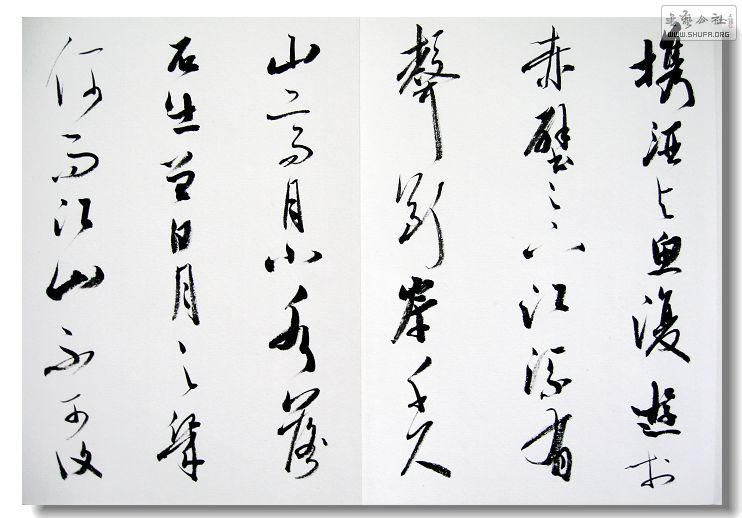 携酒与魚復遊於
赤壁之下江流有
聲斷岸千尺
山高月小水落
石出曾日月之幾
何而江山不可復
書藝公社
WWW.SHUFA.ORG